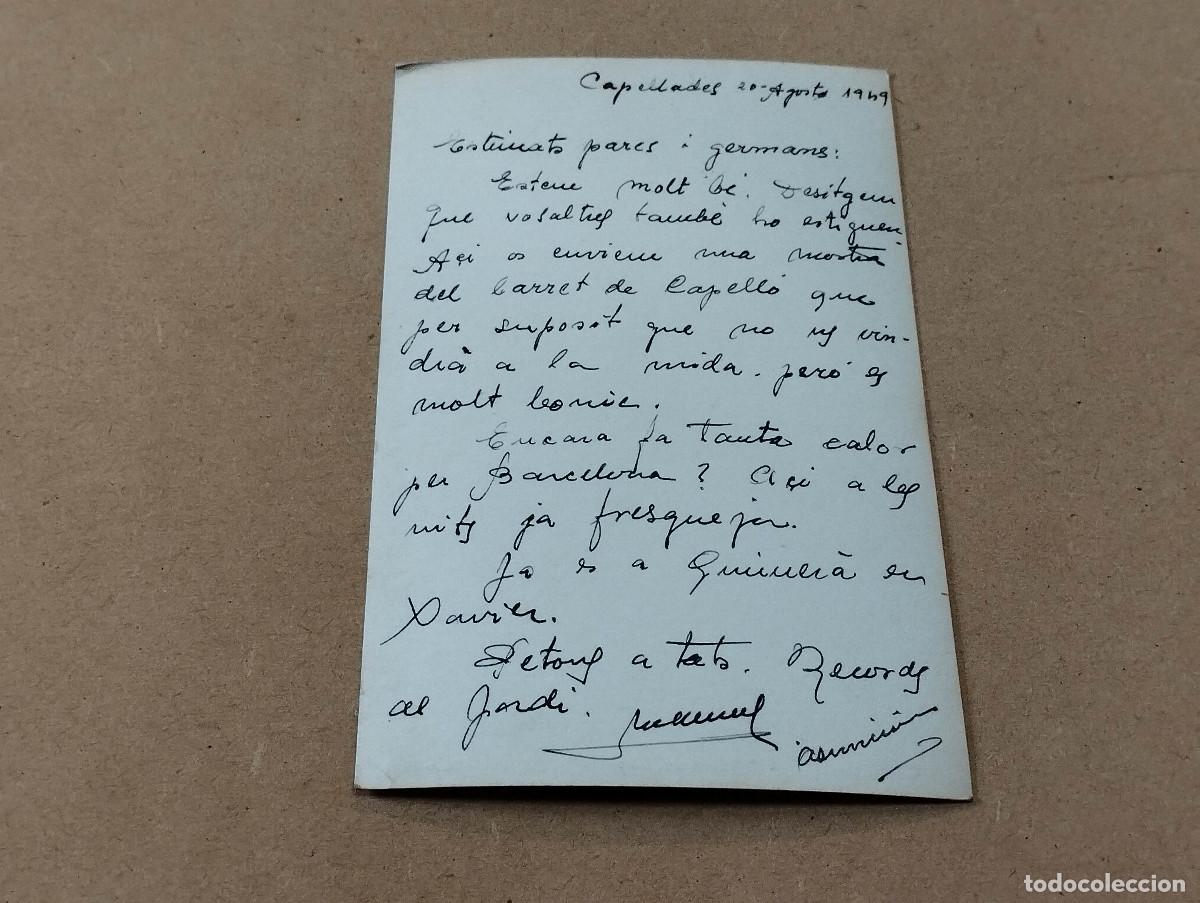 Capellades 20-Agosto 1949
Estimats pares i germans:
Estem molt bé. Desitgem
que vosaltres també ho estiguen.
Açi os enviem una mostra
del barret de Capelló que
per suposit que no us vin-
drià a la mida. però es
molt bonic.
Encara fa tanta calor
per Barcelona? Açi a les
nits ja fresqueja.
Ja es a Guimerà en
Xavier.
Petons a tots. Records
al Jordi. Manuel
Asunción
todocoleccion